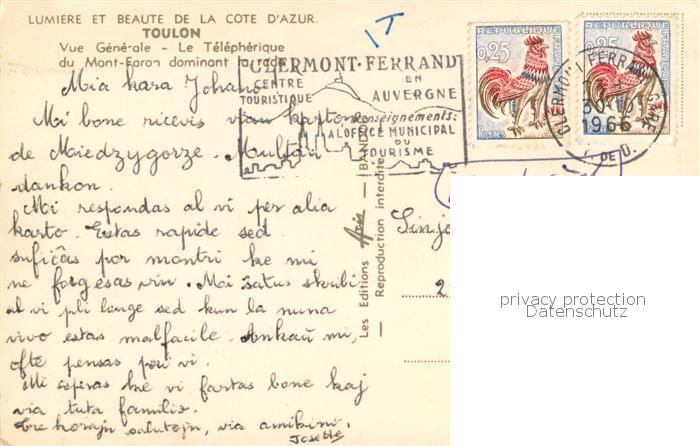 LUMIERE ET BEAUTE DE LA COTE D'AZUR.
TOULON
Vue Générale - Le Téléphérique
du Mont-Faron dominant la rade
Mia kara Johano
Mi bone ricevis vian karton
de Miedzygorze. Multan
dankon.
Mi respondas al vi per alia
karto. Estas rapide sed
sufiĉas por montri ke mi
ne forgesas vin. Mi ŝatus skribi
al vi pli longe sed kun la nuna
vivo estas malfacile. Ankaŭ mi,
ofte pensas pri vi.
Mi esperas ke vi fartas bone kaj
via tuta familio.
Tre korajn salutojn, via amikino,
Josette
CLERMONT-FERRAND
CENTRE
TOURISTIQUE
EN
AUVERGNE
Renseignements:
A L'OFFICE MUNICIPAL
DU
TOURISME
T
REPUBLIQUE FRANCAISE
0,25
POSTES
REPUBLIQUE
0,25
CLERMONT FERRAND GARE
1966
P. DE D.
Les Editions Aris — BANDOL
Reproduction interdite
Sinjo
2
privacy protection
Datenschutz